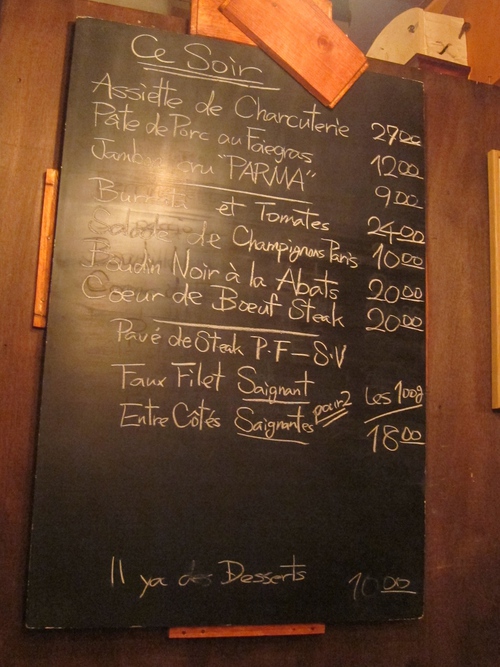 Ce Soir
Assiette de Charcuterie 27.00
Pâte de Porc au Foiegras 12.00
Jambon cru "PARMA" 9.00
Burrata et Tomates 24.00
Salade de Champignons Paris 10.00
Boudin Noir à la Abats 20.00
Coeur de Boeuf Steak 20.00
Pavé de Steak P.F-S.V
Faux Filet Saignant Les 100g
Entre Côtés Saignantes pour 2 18.00
Il ya des Desserts 10.00